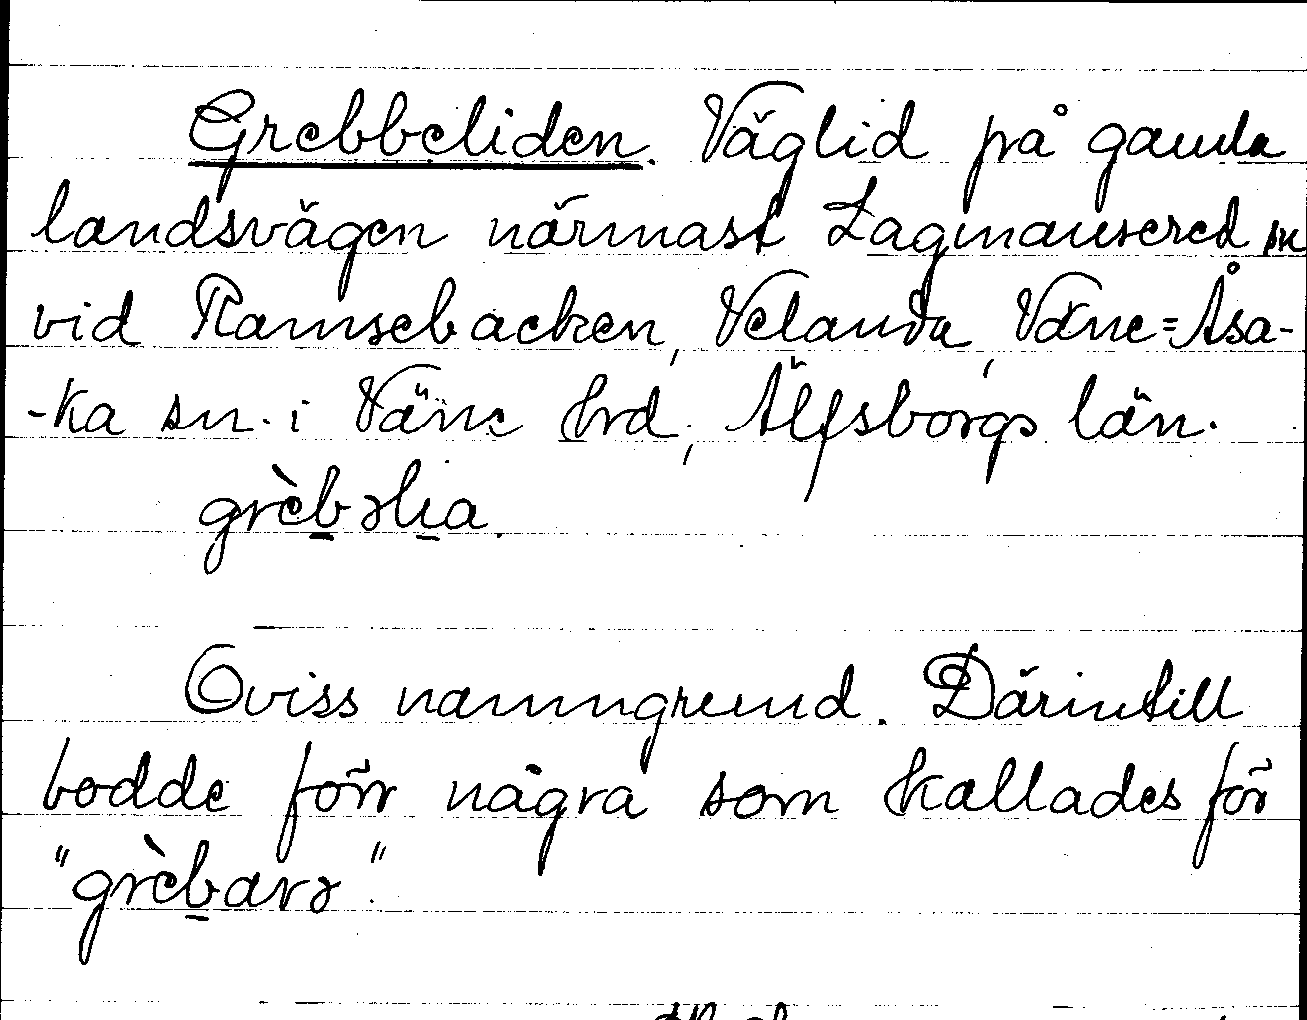 Grebbeliden. Väglid på gamla
landsvägen närmast Lagmansered sn
vid Ramsebacken, Velanda, Väne=Åsa-
-ka sn. i Väne hrd, Älfsborgs län.
grèb̲əli̲a.
Oviss namngrund. Därintill
bodde förr några som kallades för
"grèb̲arə".